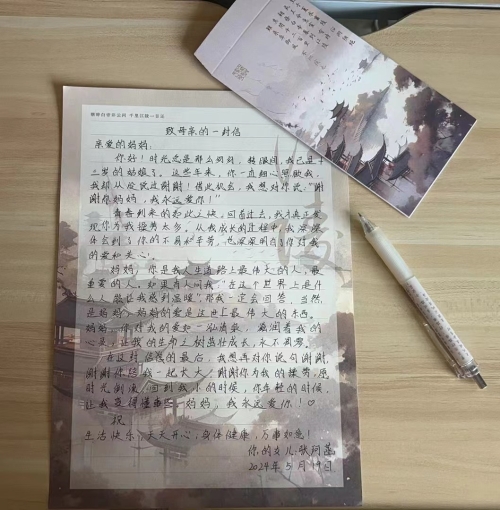 致母亲的一封信
亲爱的妈妈:
你好!时光总是那么匆匆,转眼间,我已是十
三岁的姑娘了。这些年来,你一直细心照顾我,
我却从没说过谢谢!借此机会,我想对你说:"谢
谢你妈妈,我永远爱你!"
青春到来的如此之快。回首过去,我才真正发
现你为我操劳太多。从我成长的过程中,我深深
体会到了你的不易和辛苦,也深深明白了你对我
的爱和关心。
妈妈,你是我人生道路上最伟大的人,最
重要的人。如果有人问我:"在这个世界上是什
么人能让我感到温暖"那我一定会回答,当然
是妈妈。妈妈的爱是这世上最伟大的东西。
妈妈,你对我的爱如一泓清泉,滋润着我的
心灵,让我的生命之树茁壮成长,永不凋零。
在这封信的最后,我想再对你说句谢谢,
谢谢你给我一把长大,谢谢你为我的操劳,愿
时光倒流,回到我小的时候,你年轻的时候,
让我变得懂事些,妈妈,我永远爱你!♡
祝
生活快乐,天天开心,身体健康,万事如意!
你的女儿:张
2024年5月19日